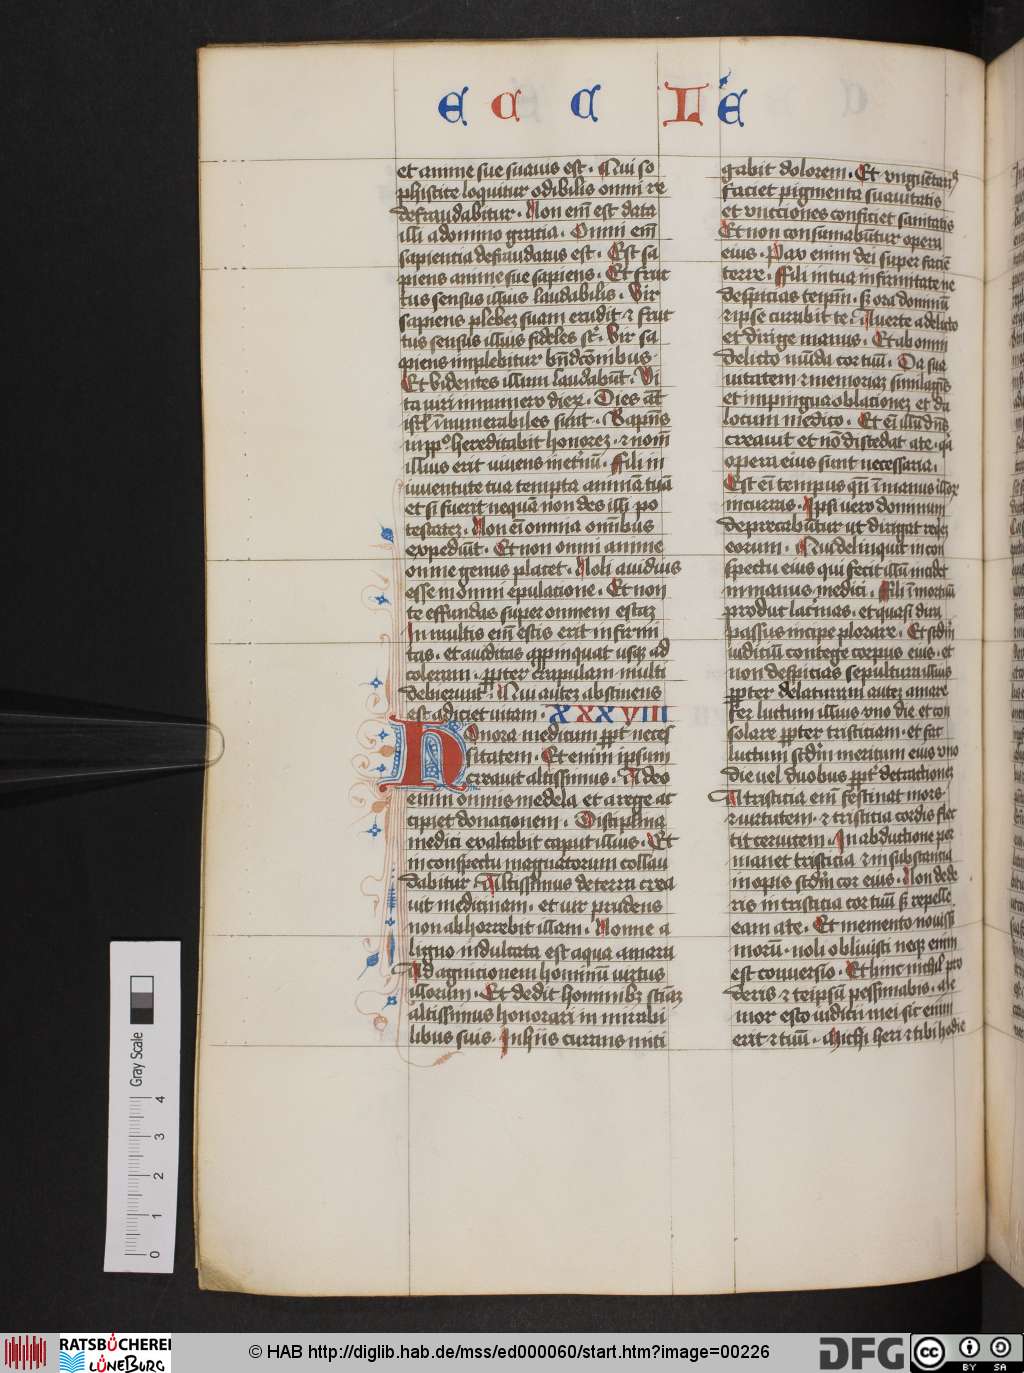 E C C L E
et anime sue suauis est. Qui so
phistice loquitur odibilis omni re
defraudabitur. Non em̄ est data
illi a domino gratia. Omni em̄
sapientia defraudatus est. Est sa
piens anime sue sapiens. Et fruc
tus sensus illius laudabilis. Vir
sapiens plebez suam erudit ⁊ fruc
tus sensus illius fideles st̄. Vir sa
piens implebitur bn̄dc̄onibus.
Et videntes illum laudabūt. Vi
ta uiri in numero dierꝝ. Dies aūt
isrl̄ īnumerabiles sunt. Sapiēs
in ppl̄o hereditabit honorez. ⁊ nom̄
illius erit uiuens inet̄nū. Fili in
iuuentute tua tempta animā tuā
et si fuerit nequā non des illi po
testatez. Non em̄ omnia omībus
expediūt. Et non omni anime
omne genus placet. Noli auidus
esse in omni epulatione. Et non
te effundas super omnem escaz
In multis em̄ escis erit infirmi
tas. et auiditas apꝓinquat usqꝫ ad
coleram. ꝓpter crapulam multi
obierunt. Qui autez abstinens
est adiciet uitam. XXXVIII
Honora medicum ꝓpt̄ neces
sitatem. Et enim ipsum
creauit altissimus. A deo
enim omnis medela et a rege ac
cipiet donationem. Disciplina
medici exaltabit caput illius. Et
in conspectu magnatorum collau
dabitur. Altissimus de terra crea
uit medicinam. et uir prudens
non abhorrebit illam. Nonne a
ligno indulcata est aqua amara
Ad agnicionem hominū uirtus
illorum. Et dedit hominibꝫ sciāz
altissimus honorari in mirabi
libus suis. In hiis curans miti
gabit dolorem. Et unguētari⁹
faciet pigmenta suauitatis
et unctiones conficiet sanitatis
Et non consumabūtur opera
eius. Pax enim dei super faciē
terre. Fili in tua infirmitate ne
despicias teip̄m. sꝫ ora dominū
⁊ ipse curabit te. Auerte a delicto
et dirige manus. Et ab omni
delicto mūda cor tuū. Da sua
uitatem ⁊ memoriaz similaginis
et impingua oblacionez et da
locum medico. Et em̄ illū dn̄s
creauit et nō discedat a te. qꝛ
opera eius sunt necessaria.
Est em̄ tempus qn̄ ī manus illorꝝ
incurras. Ipsi uero dominum
deprecabūtur ut dirigat requiē
eorum. Qui delinquit in con
spectu eius qui fecit illū incidet
in manus medici. Fili ī mortuū
produc lacrimas. et quasi dira
passus incipe plorare. Et scd̄m
iudiciū contege corpus eius. et
non despicias sepulturam illius
ꝓpter delaturam autez amare
fer luctum illius uno die et con
solare ꝓpter tristiciam. et fac
luctum scd̄m meritum eius uno
die uel duobus ꝓpt̄ detractionez
A tristicia em̄ festinat mors.
⁊ uirtutem. ⁊ tristicia cordis flec
tit ceruicem. In abductione per
manet tristicia ⁊ in substantia
inopis scd̄m cor eius. Non dede
ris in tristicia cor tuū sꝫ repelle
eam a te. Et memento nouissi
morū. noli obliuisci neqꝫ enim
est conuersio. Et huic nichil pro
deris ⁊ teipsū pessimabis. Me
mor esto iudicii mei sic enim
erit ⁊ tuū. Michi heri ⁊ tibi hodie
Gray Scale
0 1 2 3 4
RATSBÜCHEREI
LÜNEBURG
© HAB http://diglib.hab.de/mss/ed000060/start.htm?image=00226
DFG
CC BY SA